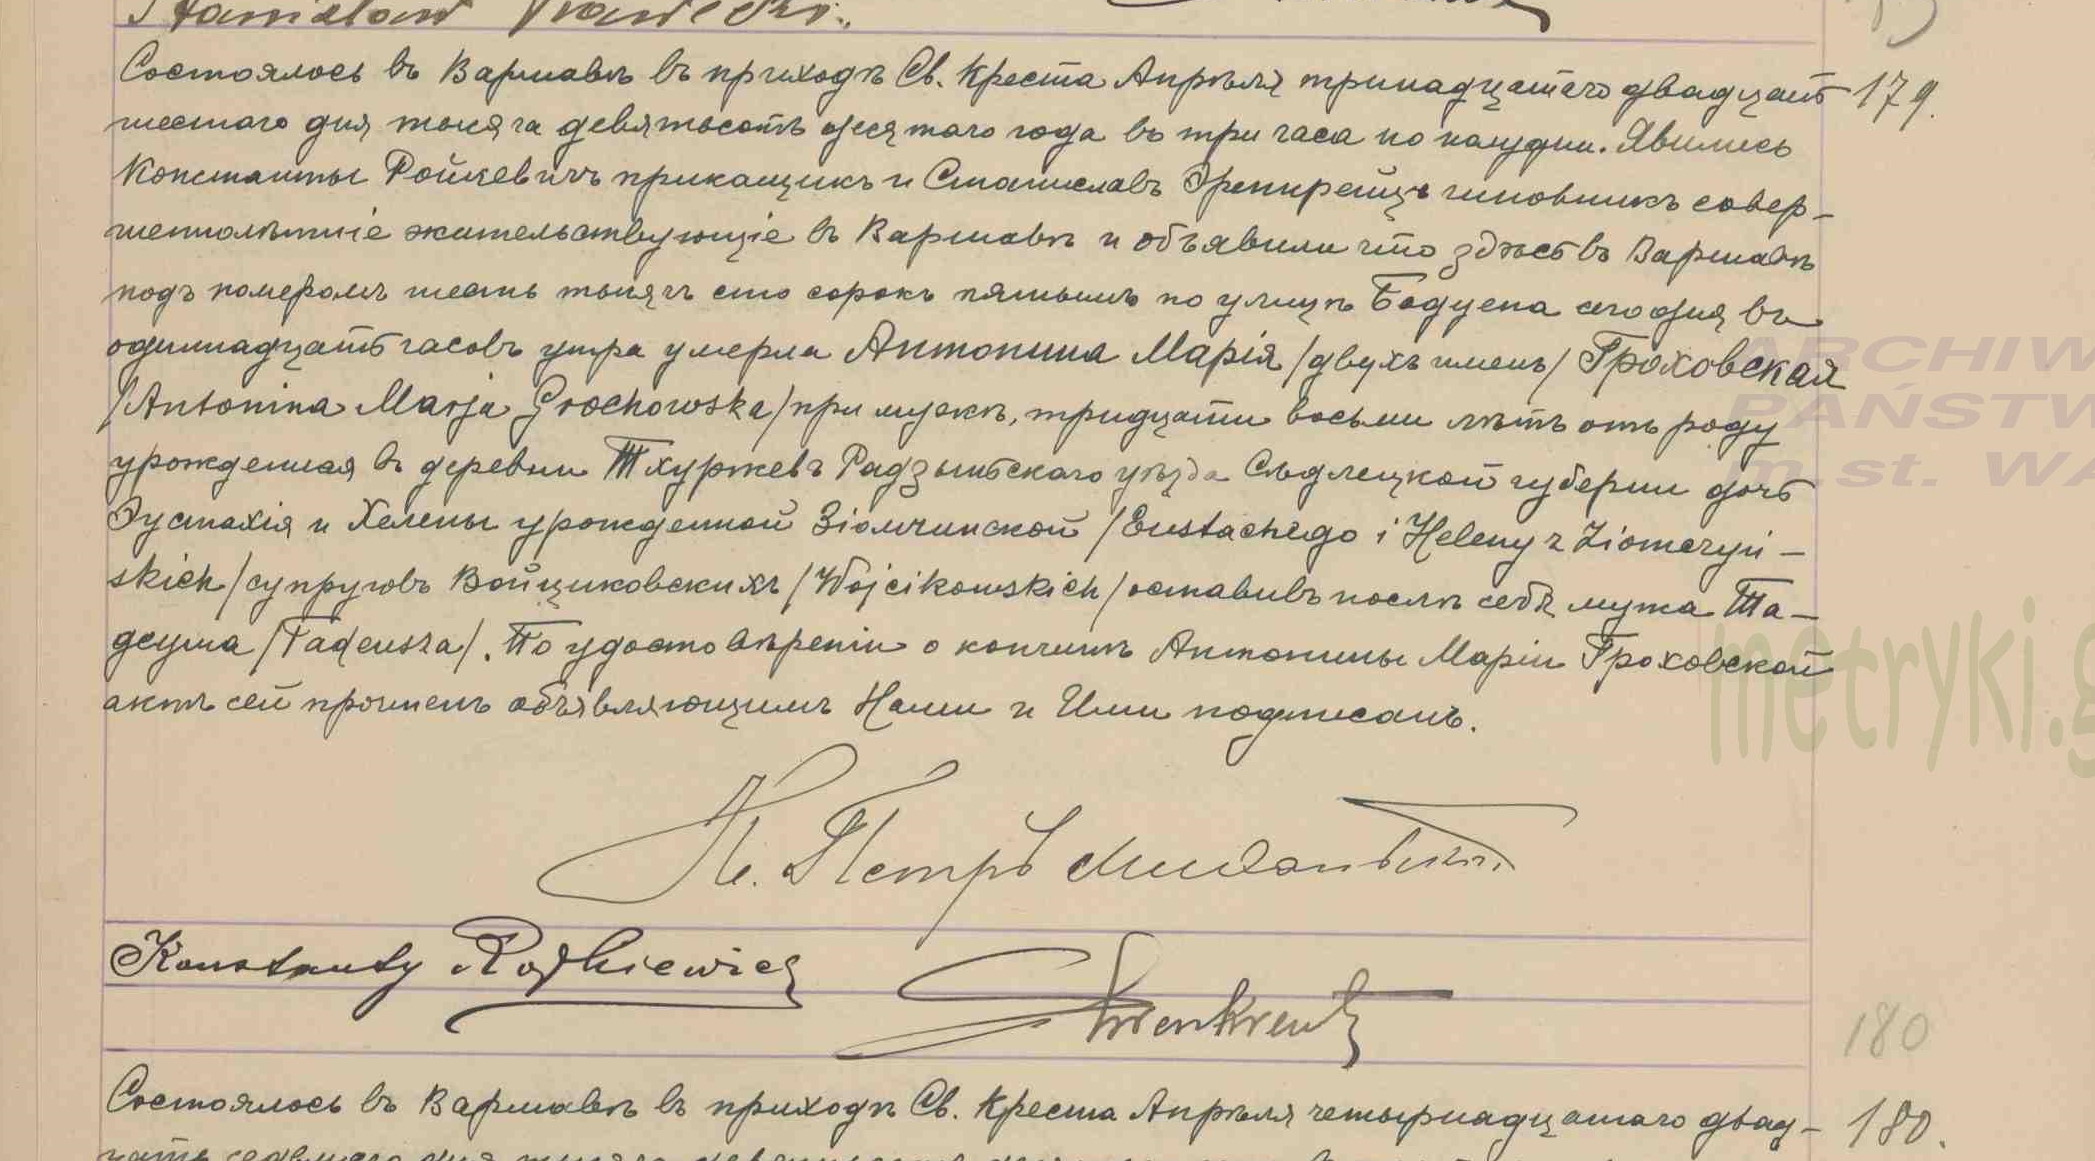 Stanisław
Состоялось въ Варшавѣ въ приходѣ Св. Креста Апрѣля тринадцатаго двадцать 179.
шестого дня тысяча девятьсотъ десятого года въ три часа по полудни. Явились
Константы Ройкевичъ прикащикъ и Станиславъ Эренкрейцъ чиновникъ совер-
шеннолѣтніе жительствующіе въ Варшавѣ и объявили что здѣсь въ Варшавѣ
подъ номеромъ шесть тысячъ сто сорокъ пятымъ по улицѣ Бодуена сегодня въ
одиннадцать часовъ утра умерла Антонина Марія /двухъ именъ/ Гроховская
/Antonina Marja Grochowska/ при мужѣ, тридцати восьми лѣтъ отъ роду
урожденная въ деревни Тхуржевъ Радзынскаго уѣзда Сѣдлецкой губерніи дочь
Эустахія и Хелены урожденной Зіомчинской /Eustachego i Heleny z Ziomczyń-
skich/ супруговъ Войциковскихъ /Wojcikowskich/ оставивъ послѣ себѣ мужа Та-
деуша /Tadeusza/. По удостовѣреніи о кончинѣ Антонины Маріи Гроховской
актъ сей прочтенъ объявляющимъ Нами и Ими подписанъ.
К. Петръ
Konstanty Rojkiewicz
Erenkreutz
180
Состоялось въ Варшавѣ въ приходѣ Св. Креста Апрѣля четырнадцатаго двад- 180.
цать седьмаго дня тысяча
ARCHIW
PAŃSTW
m.st. WA
metryki.g